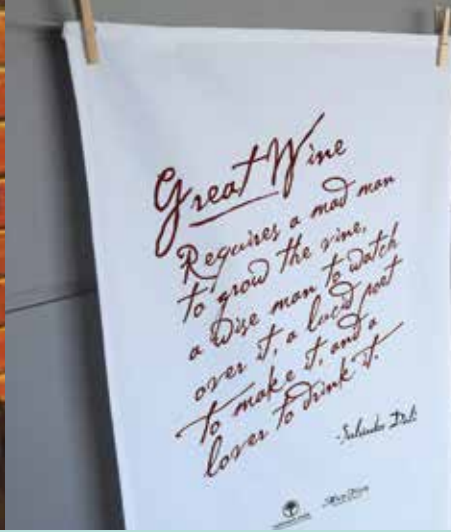 Great Wine
Requires a mad man
to grow the vine,
a wise man to watch
over it, a lucid poet
to make it, and a
lover to drink it.
-Salvador Dali